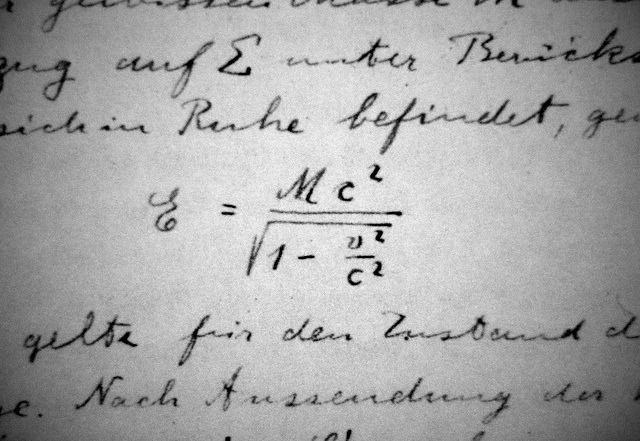 gewissen Masse M
auf Σ unter
sich in Ruhe befindet,
E = M c² / √(1 - v²/c²)
gelte für den Zustand d
Nach Aussendung der